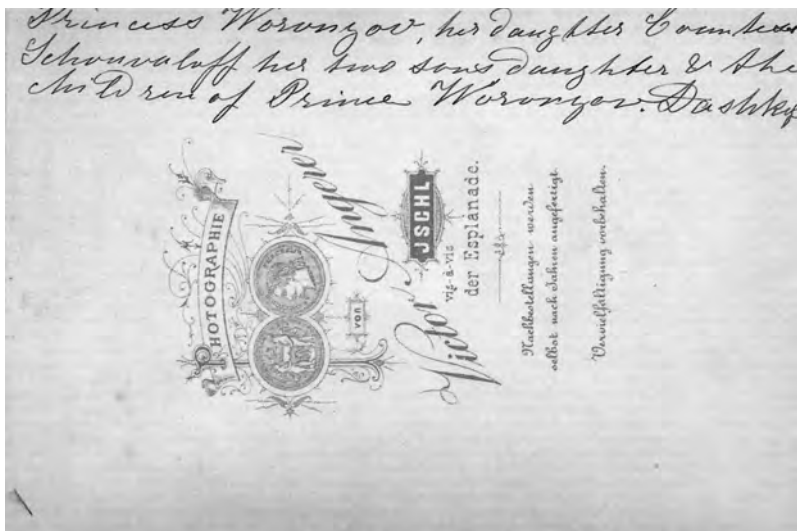 Princess Woronzov, her daughter Countess
Schouvaloff her two sons daughter & the
children of Prince Woronzov. Dashkov
PHOTOGRAPHIE
von
Victor Angerer
JSCHL
vis-à-vis
der Esplanade.
Nachbestellungen werden
selbst nach Jahren angefertigt
Vervielfältigung vorbehalten.